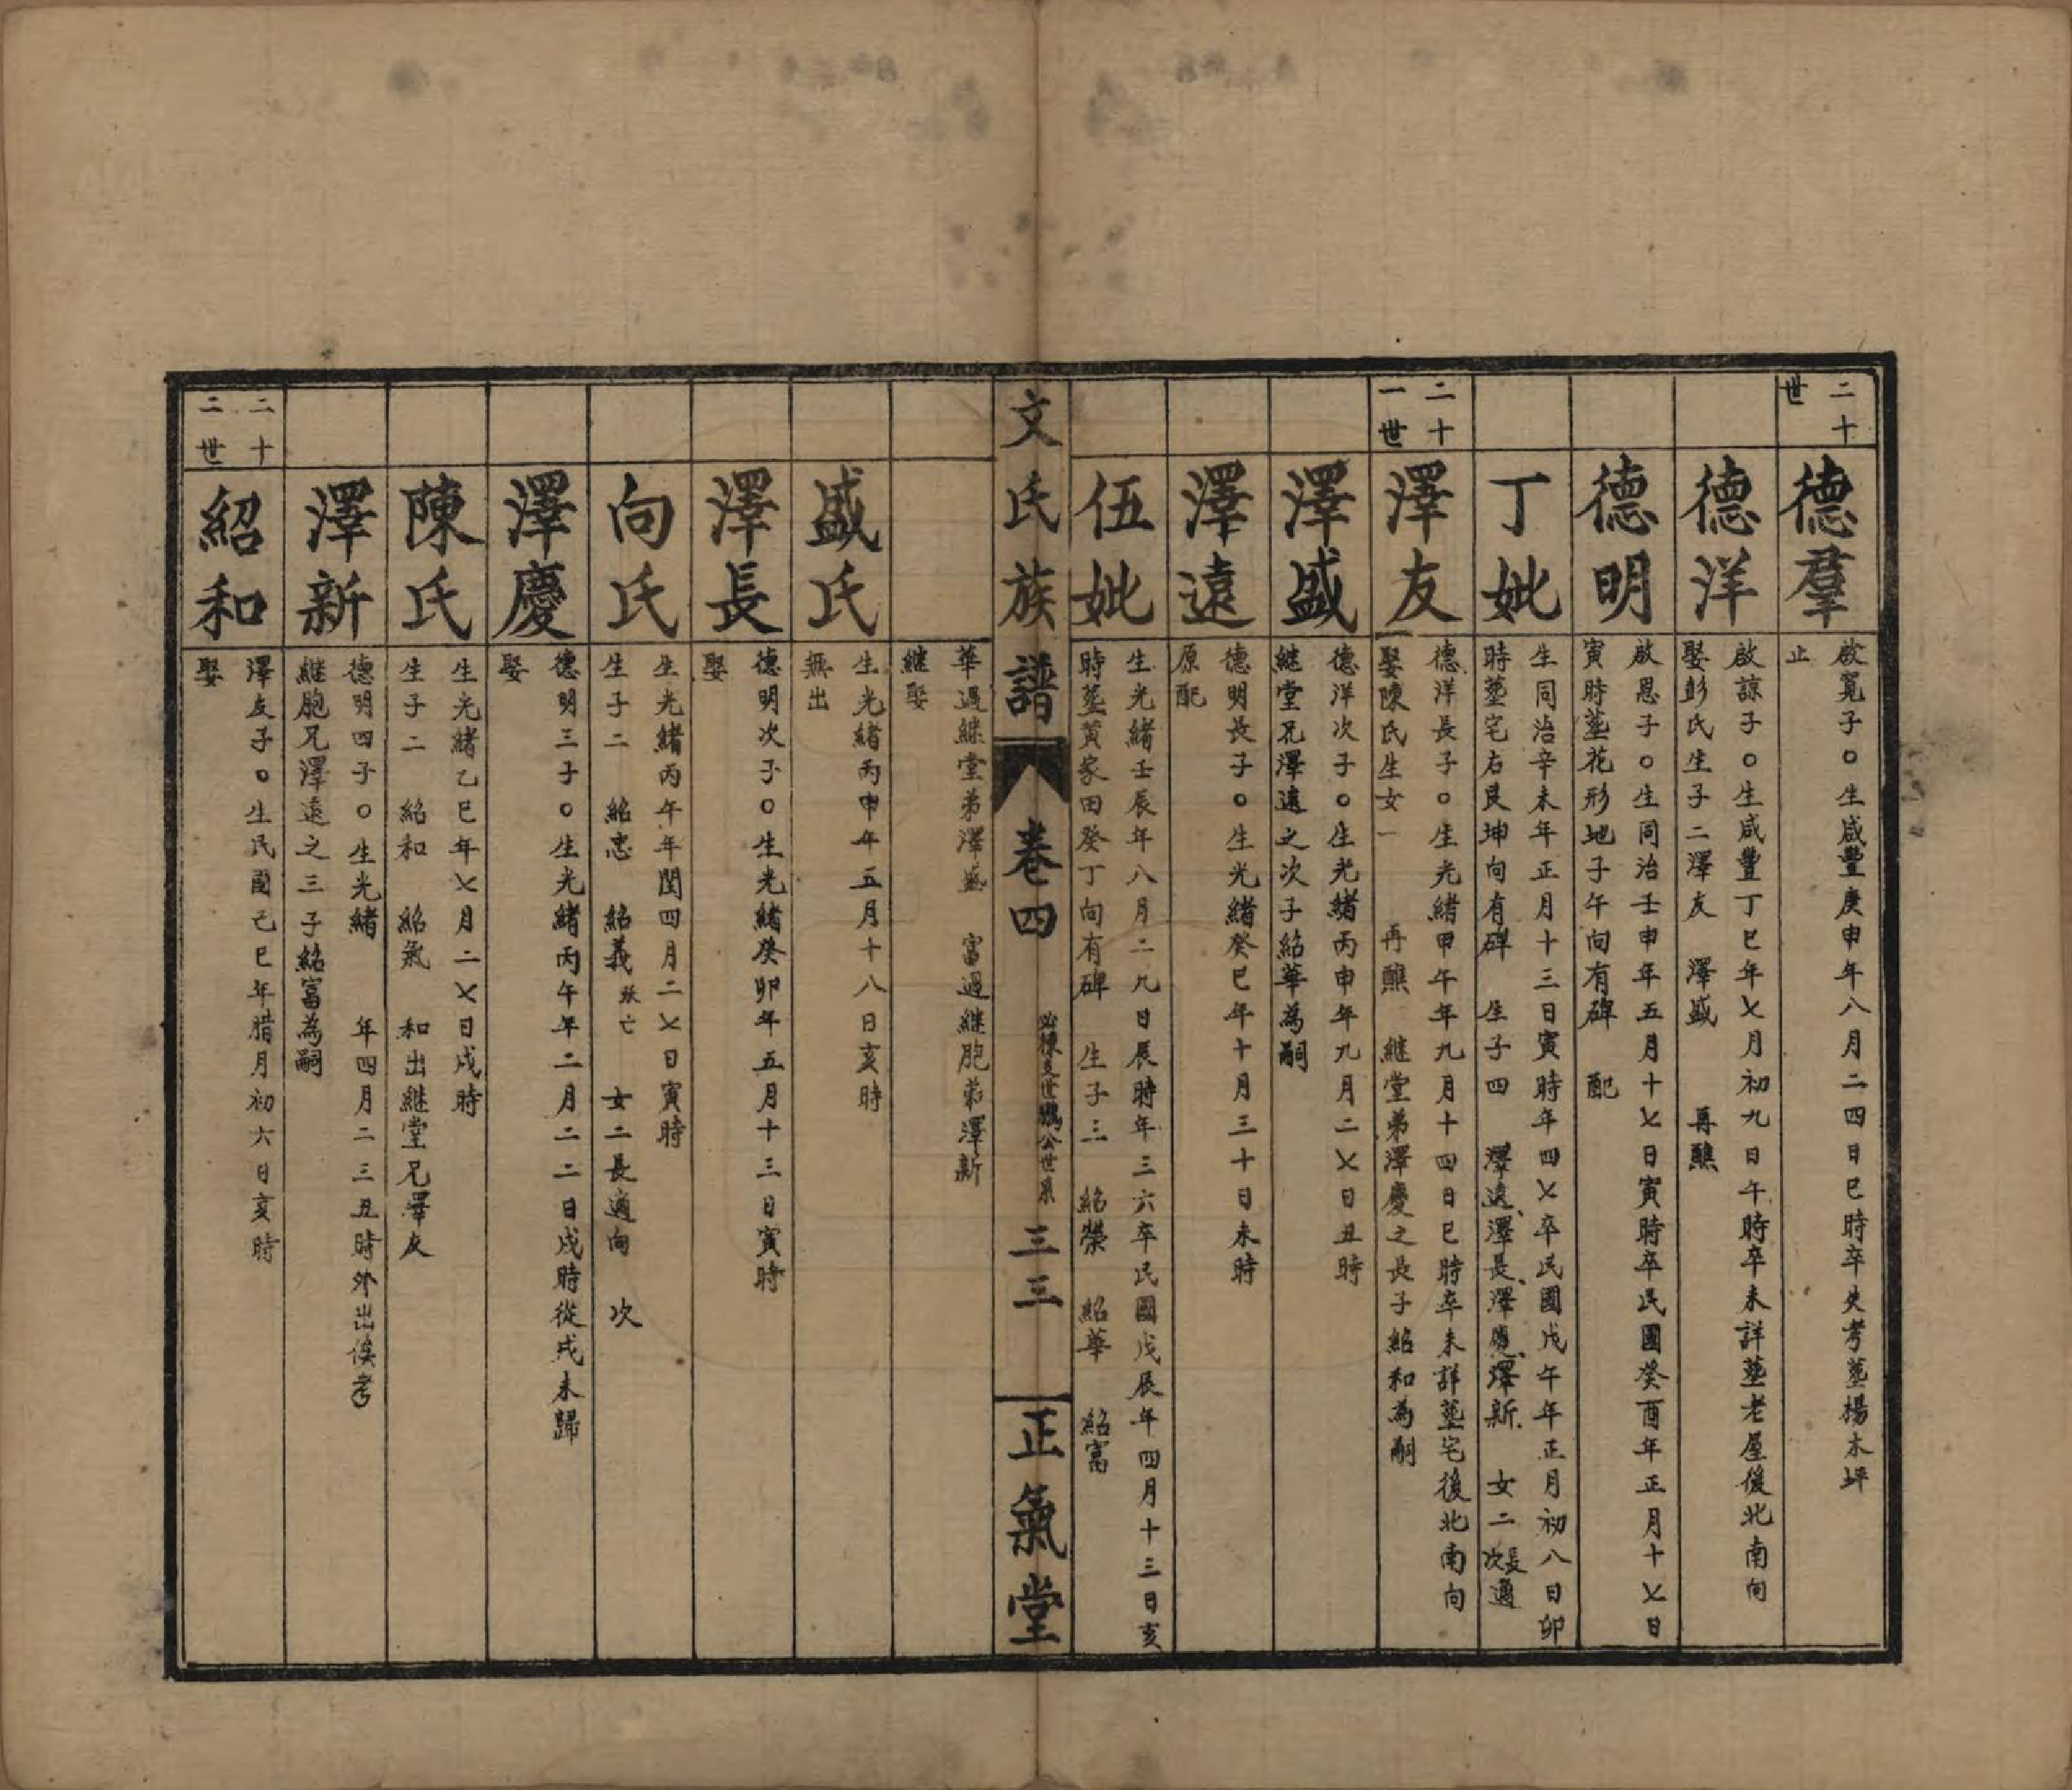 二十
世
德羣
啟寬子○生咸豐庚申年八月二四日巳時卒失考塟楊木坪
止
德洋
啟諒子○生咸豐丁巳年七月初九日午時卒未詳塟老屋後北南向
娶彭氏生子二澤友 澤盛 再醮
德明
啟恩子○生同治壬申年五月十七日寅時卒民國癸酉年正月十七日
寅時塟花形地子午向有碑 配
丁妣
生同治辛未年正月十三日寅時年四七卒民國戊午年正月初八日卯
時塟宅右艮坤向有碑 生子四 澤遠、澤長、澤慶、澤新、女二長次適
二十
一世
澤友
德洋長子○生光緒甲午年九月十四日巳時卒未詳塟宅後北南向
娶陳氏生女一 再醮 継堂弟澤慶之長子紹和為嗣
澤盛
德洋次子○生光緒丙申年九月二七日丑時
継堂兄澤遠之次子紹華為嗣
澤遠
德明長子○生光緒癸巳年十月三十日未時
原配
伍妣
生光緒壬辰年八月二九日辰時年三六卒民國戊辰年四月十三日亥
時塟黃家田癸丁向有碑 生子三 紹榮 紹華 紹富
文氏族譜 卷四
公世系 三三 正氣堂
華過継堂弟澤盛 富過継胞弟澤新
継娶
盛氏
生光緒丙申年五月十八日亥時
無出
澤長
德明次子○生光緒癸卯年五月十三日寅時
娶
向氏
生光緒丙午年閏四月二七日寅時
生子二 紹忠 紹義殀亡 女二長適向 次
澤慶
德明三子○生光緒丙午年二月二二日戌時從戎未歸
娶
陳氏
生光緒乙巳年七月二七日戌時
生子二 紹和 紹氣 和出継堂兄澤友
澤新
德明四子○生光緒 年四月二三丑時外出俟考
継胞兄澤遠之三子紹富為嗣
二十
二世
紹和
澤友子○生民國己巳年腊月初六日亥時
娶